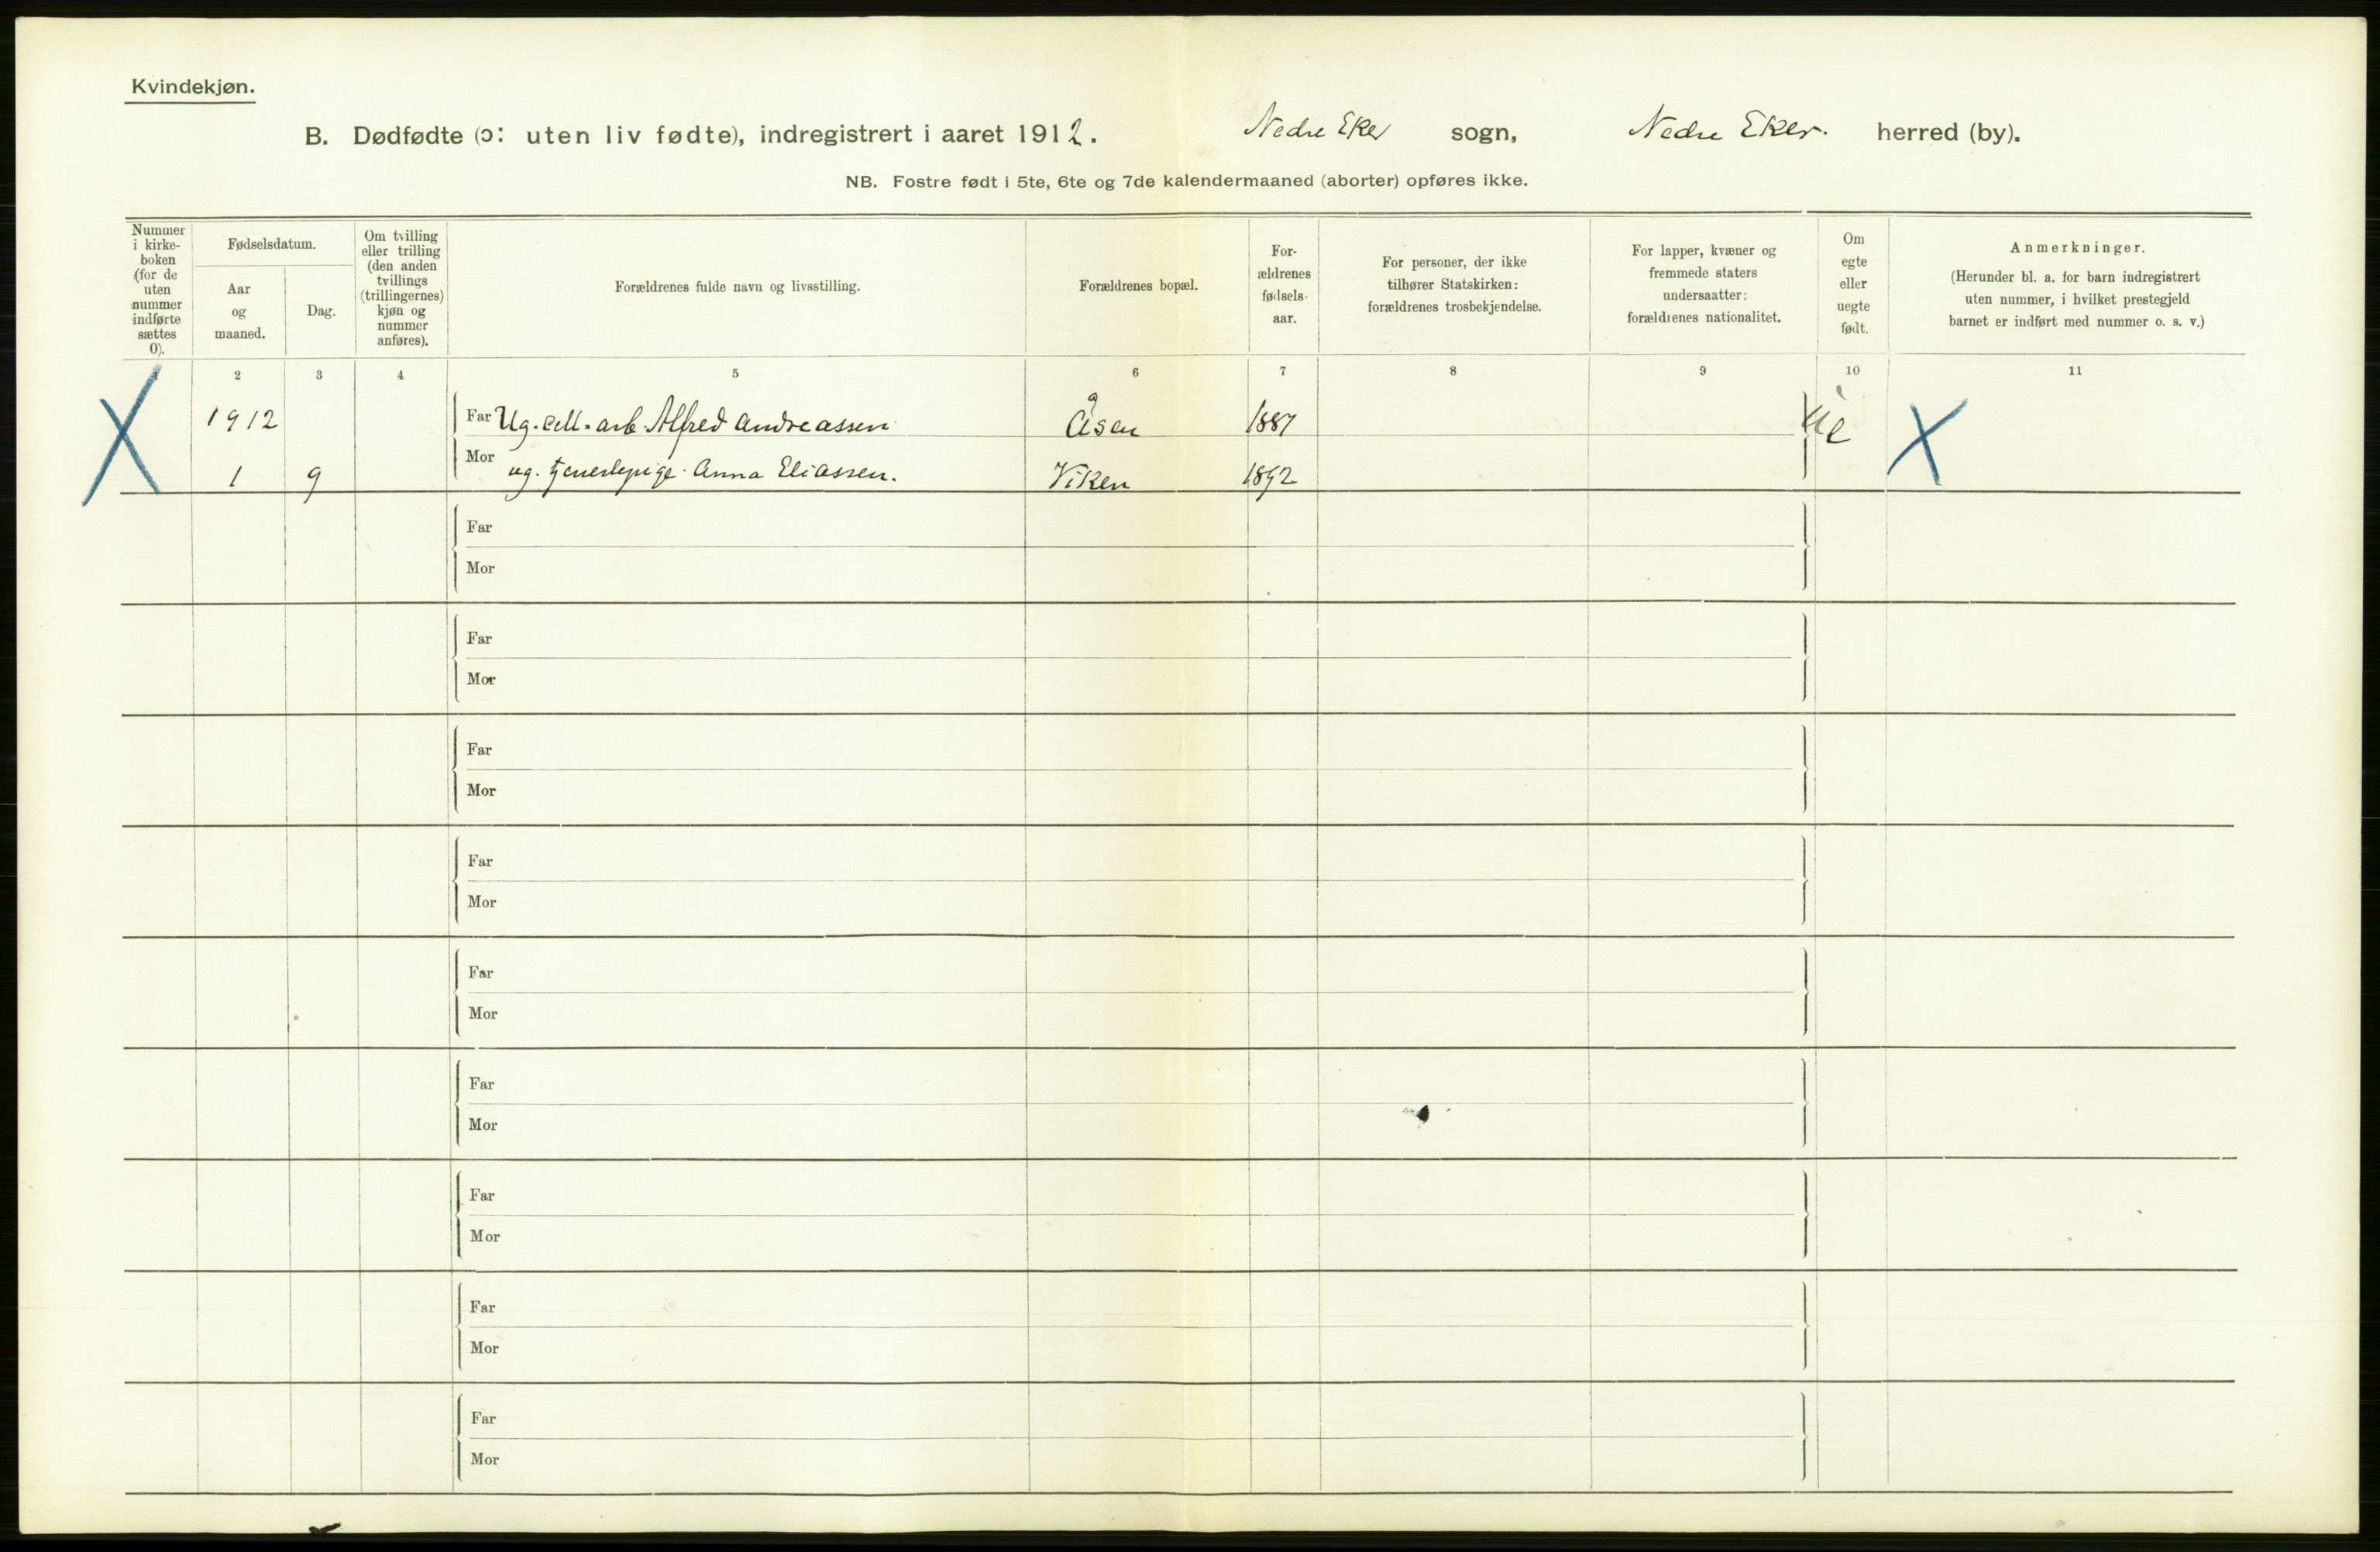 Kvindekjøn.
B. Dødfødte (ɔ: uten liv fødte), indregistrert i aaret 1912. Nedre Eker sogn, Nedre Eker. herred (by).
NB. Fostre født i 5te, 6te og 7de kalendermaaned (aborter) opføres ikke.
Nummer
i kirke-
boken
(for de
uten
nummer
indførte
sættes
0).
Fødselsdatum.
Aar
og
maaned.
Dag.
Om tvilling
eller trilling
(den anden
tvillings
(trillingernes)
kjøn og
nummer
anføres).
Forældrenes fulde navn og livsstilling.
Forældrenes bopæl.
For-
ældrenes
fødsels-
aar.
For personer, der ikke
tilhører Statskirken:
forældrenes trosbekjendelse.
For lapper, kvæner og
fremmede staters
undersaatter:
forældrenes nationalitet.
Om
egte
eller
uegte
født.
Anmerkninger.
(Herunder bl. a. for barn indregistrert
uten nummer, i hvilket prestegjeld
barnet er indført med nummer o. s. v.)
1 2 3 4 5 6 7 8 9 10 11
1912 Far Ug. cell. arb. Alfred Andreassen Åsen 1887 ue
1 9 Mor ug. tjenestepige Anna Eliassen. Viken 1892
Far
Mor
Far
Mor
Far
Mor
Far
Mor
Far
Mor
Far
Mor
Far
Mor
Far
Mor
Far
Mor